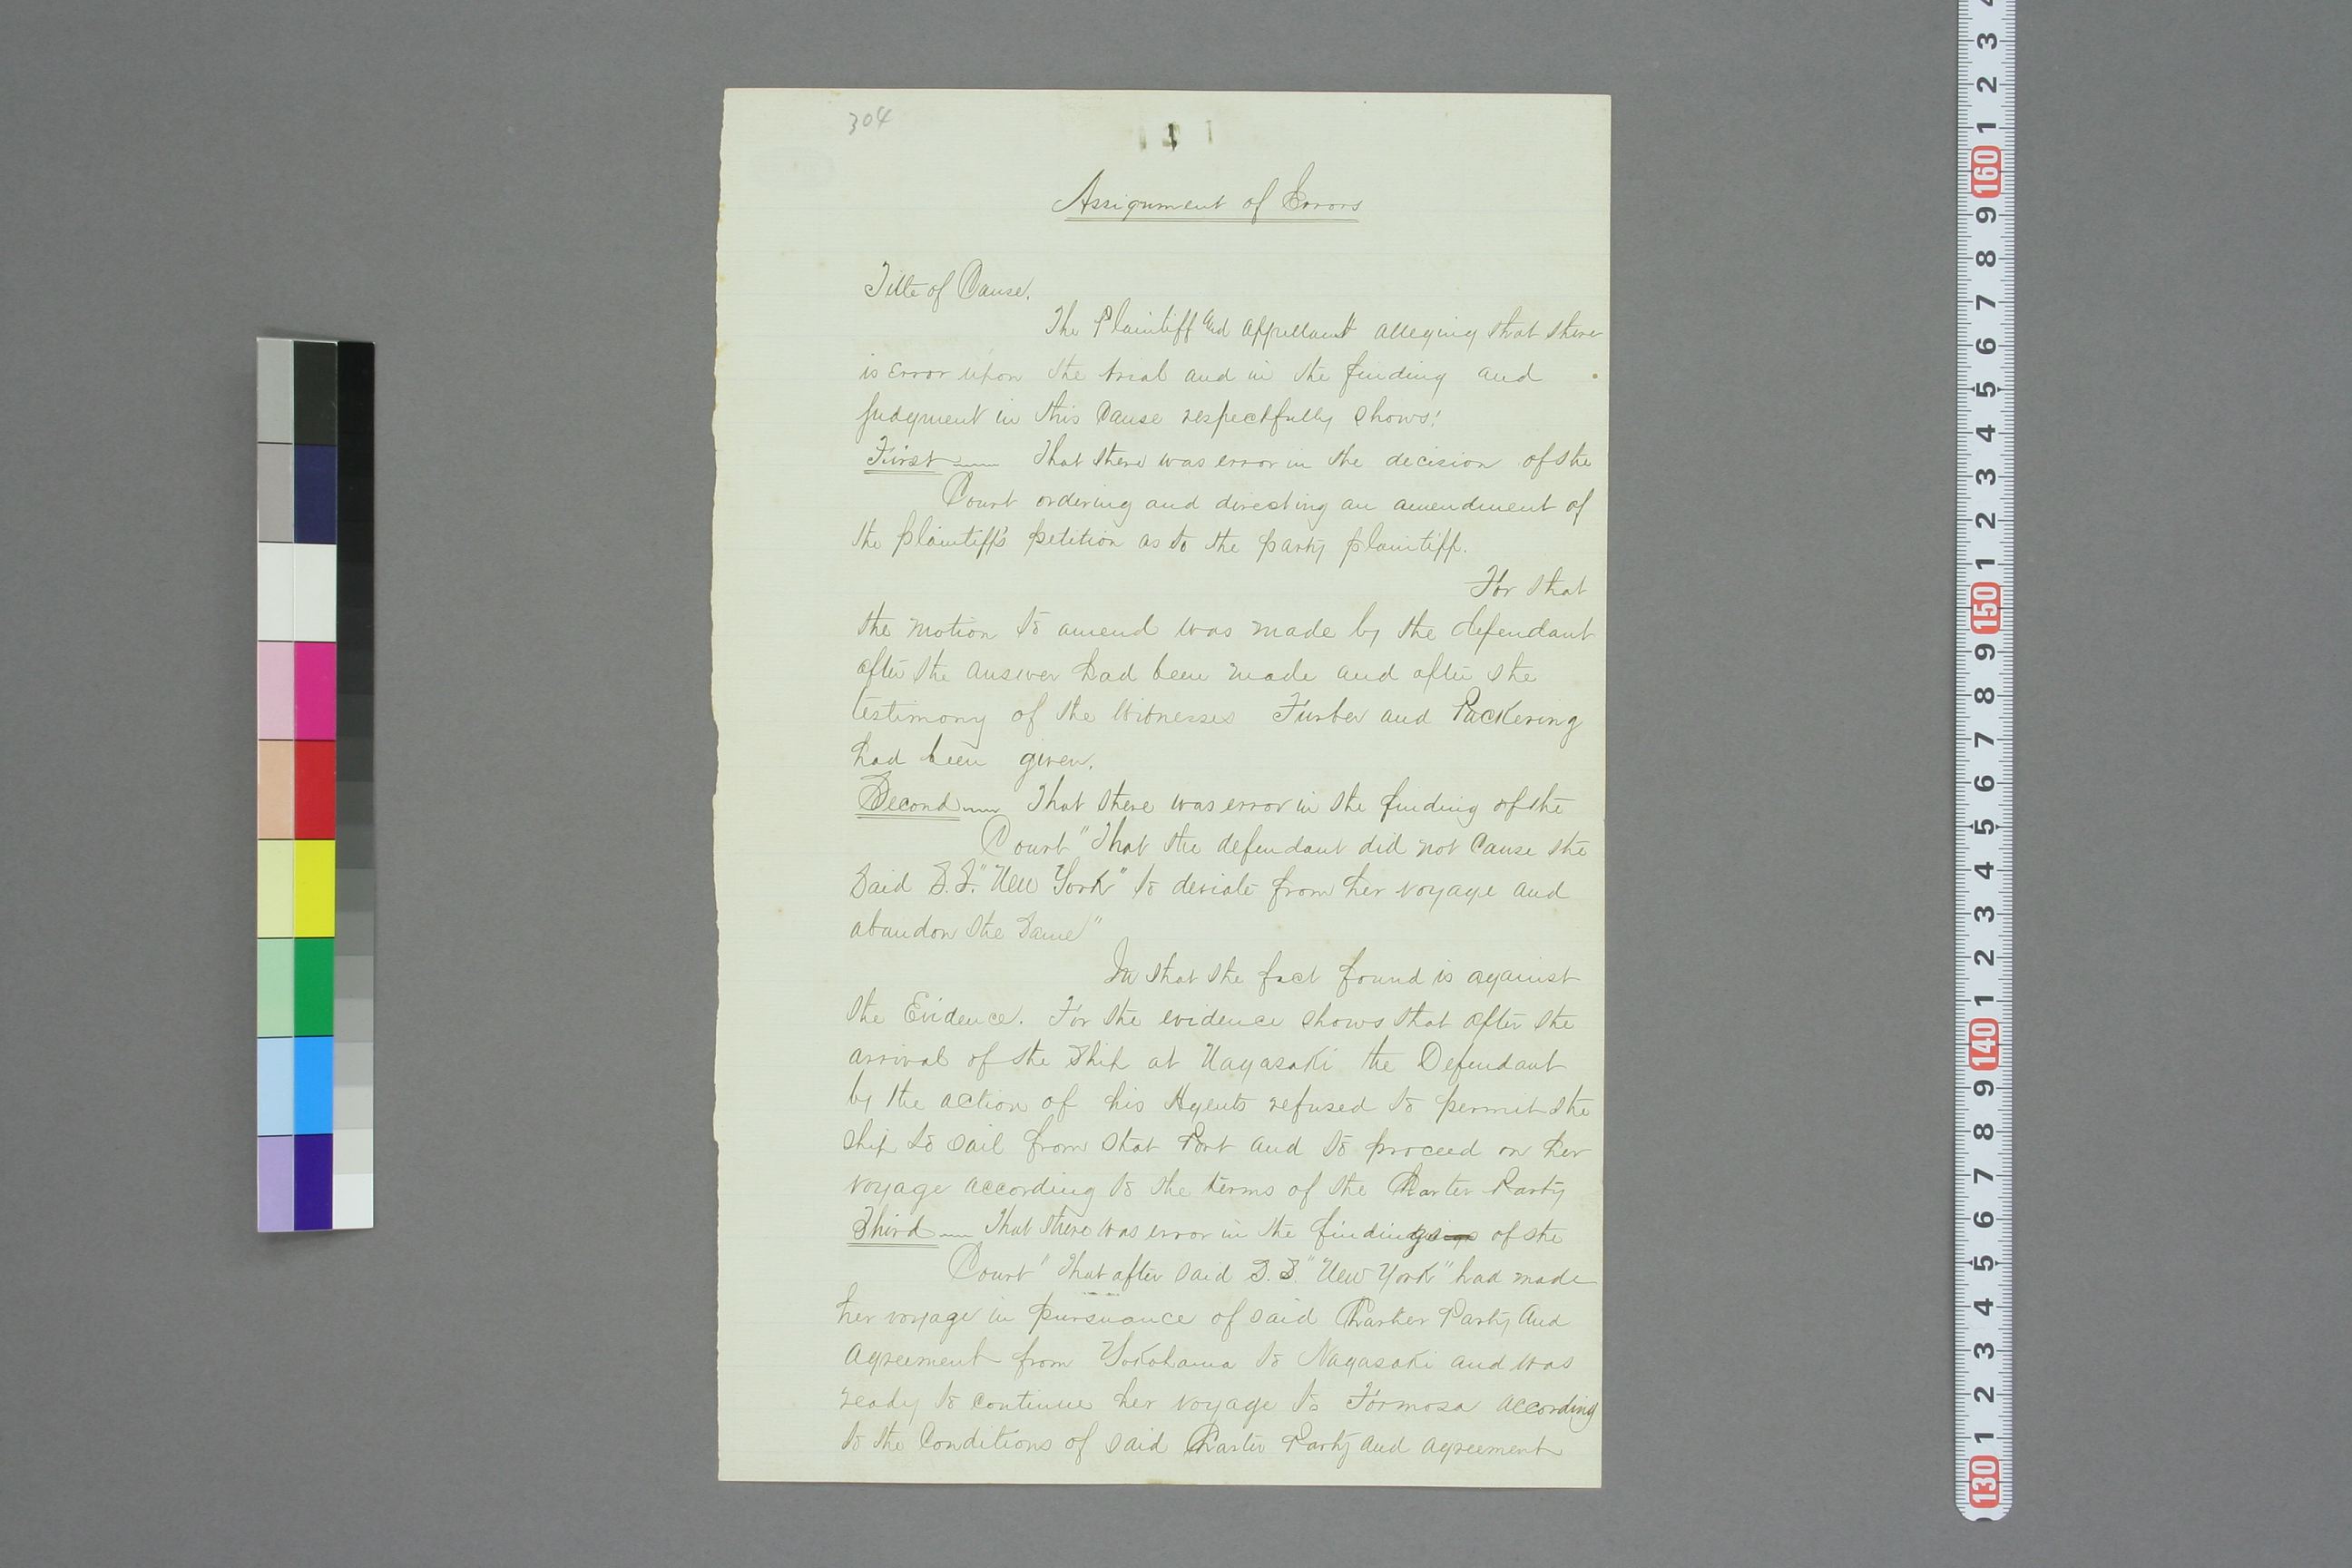 304
Assignment of Errors
Title of Cause.
The Plaintiff and Appellant alleging that there
is Error upon the trial and in the finding and
Judgment in this Cause respectfully shows:
First That there was error in the decision of the
Court ordering and directing an amendment of
the plaintiff's petition as to the party plaintiff.
For that
the motion to amend was made by the defendant
after the answer had been made and after the
testimony of the Witnesses Furber and Packering
had been given.
Second That there was error in the finding of the
Court "That the defendant did not Cause the
Said S.S. "New York" to deviate from her voyage and
abandon the Same"
In that the fact found is against
the Evidence. For the evidence shows that after the
arrival of the Ship at Nagasaki the Defendant
by the action of his Agents refused to permit the
ship to sail from that Port and to proceed on her
voyage according to the terms of the Charter Party
Third That there was error in the findings of the
Court "That after said S.S. "New York" had made
her voyage in pursuance of said Charter Party And
Agreement from Yokohama to Nagasaki and was
ready to continue her voyage to Formosa according
to the Conditions of said Charter Party and agreement
4
3
2
1
160
9
8
7
6
5
4
3
2
1
150
9
8
7
6
5
4
3
2
1
140
9
8
7
6
5
4
3
2
1
130